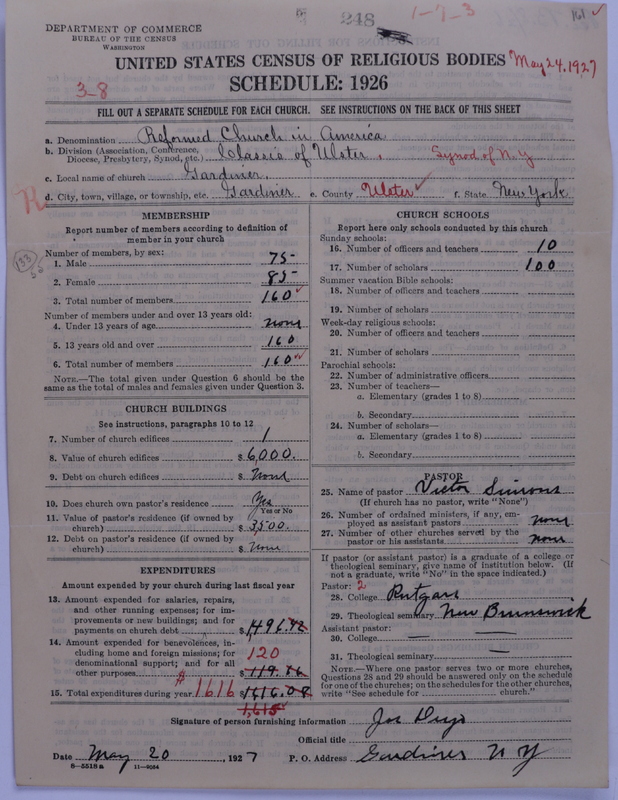 248
1-7-3
161
DEPARTMENT OF COMMERCE
BUREAU OF THE CENSUS
WASHINGTON
UNITED STATES CENSUS OF RELIGIOUS BODIES
May 24, 1927
SCHEDULE: 1926
3-8
FILL OUT A SEPARATE SCHEDULE FOR EACH CHURCH. SEE INSTRUCTIONS ON THE BACK OF THIS SHEET
a. Denomination Reformed Church in America
b. Division (Association, Conference, Diocese, Presbytery, Synod, etc.) Classis of Ulster, Synod of N.Y
c. Local name of church Gardiner.
d. City, town, village, or township, etc. Gardiner e. County Ulster f. State New York
R
MEMBERSHIP
Report number of members according to definition of
member in your church
133
Number of members, by sex:
1. Male 75
2. Female 85
3. Total number of members 160
Number of members under and over 13 years old:
4. Under 13 years of age none
5. 13 years old and over 160
6. Total number of members 160
NOTE.—The total given under Question 6 should be the
same as the total of males and females given under Question 3.
CHURCH BUILDINGS
See instructions, paragraphs 10 to 12
7. Number of church edifices 1
8. Value of church edifices $ 6,000.
9. Debt on church edifices $ None
10. Does church own pastor's residence Yes
Yes or No
11. Value of pastor's residence (if owned by
church) $ 3,500.
12. Debt on pastor's residence (if owned by
church) $ None
EXPENDITURES
Amount expended by your church during last fiscal year
13. Amount expended for salaries, repairs,
and other running expenses; for im-
provements or new buildings; and for
payments on church debt $ 1,496.42
14. Amount expended for benevolences, in-
cluding home and foreign missions; for
denominational support; and for all
other purposes $ 119.66
120
15. Total expenditures during year $ 1616 1616.08
1,615
CHURCH SCHOOLS
Report here only schools conducted by this church
Sunday schools:
16. Number of officers and teachers 10
17. Number of scholars 100
Summer vacation Bible schools:
18. Number of officers and teachers
19. Number of scholars
Week-day religious schools:
20. Number of officers and teachers
21. Number of scholars
Parochial schools:
22. Number of administrative officers
23. Number of teachers—
a. Elementary (grades 1 to 8)
b. Secondary
24. Number of scholars—
a. Elementary (grades 1 to 8)
b. Secondary
PASTOR
25. Name of pastor Victor Simons
(If church has no pastor, write "None")
26. Number of ordained ministers, if any, em-
ployed as assistant pastors none
27. Number of other churches served by the
pastor or his assistants none
If pastor (or assistant pastor) is a graduate of a college or
theological seminary, give name of institution below. (If
not a graduate, write "No" in the space indicated.)
Pastor: 2
28. College Rutgers
29. Theological seminary New Brunswick
Assistant pastor:
30. College —
31. Theological seminary —
NOTE.—Where one pastor serves two or more churches,
Questions 28 and 29 should be answered only on the schedule
for one of the churches; on the schedules for the other churches,
write "See schedule for church."
Signature of person furnishing information Jos
Official title
Date May 20, 1927 P. O. Address Gardiner N Y
8-5518 a 11-9064